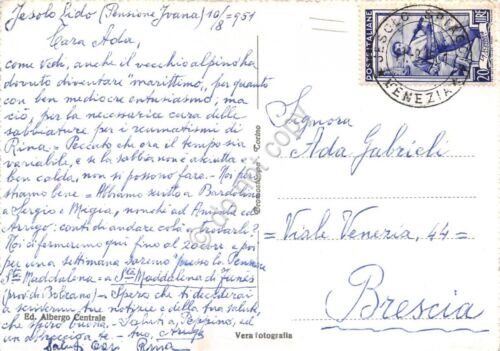 Jesolo Lido (Pensione Ivana) 10/8=951
Cara Ada,
come vedi, anche il vecchio alpino ha
dovuto diventare "marittimo", per quanto
con ben mediocre entusiasmo; ma
ciò, per la necessaria cura delle
sabbiature per i reumatismi di
Rina = Peccato che ora il tempo sia
variabile, e se la sabbia non è asciutta e
ben calda, non si possono fare = Noi per
stiamo bene = Abbiamo scritto a Bardolino
a Sergio e nonchè ad
Arrigo: conti di andare colà a trovarle?
Noi di fermeremo qui fino al 20 corr e poi
per una settimana saremo presso la Pensione
Sta Maddalena = a Sta Maddalena di Funes
(prov. di Bolzano) = Spero che ti deciderai
a scrivermi tue notizie e della tua salute,
che spero buona. Saluti a Peppino, ed
un abbraccio a te = tuo
Saluti cari Rina
Ed. Albergo Centrale
Vera Fotografia
POSTE ITALIANE
20
JESOLO
VENEZIA
do not copy
Signora
Ada Gabrieli
= Viale Venezia, 44 =
Brescia